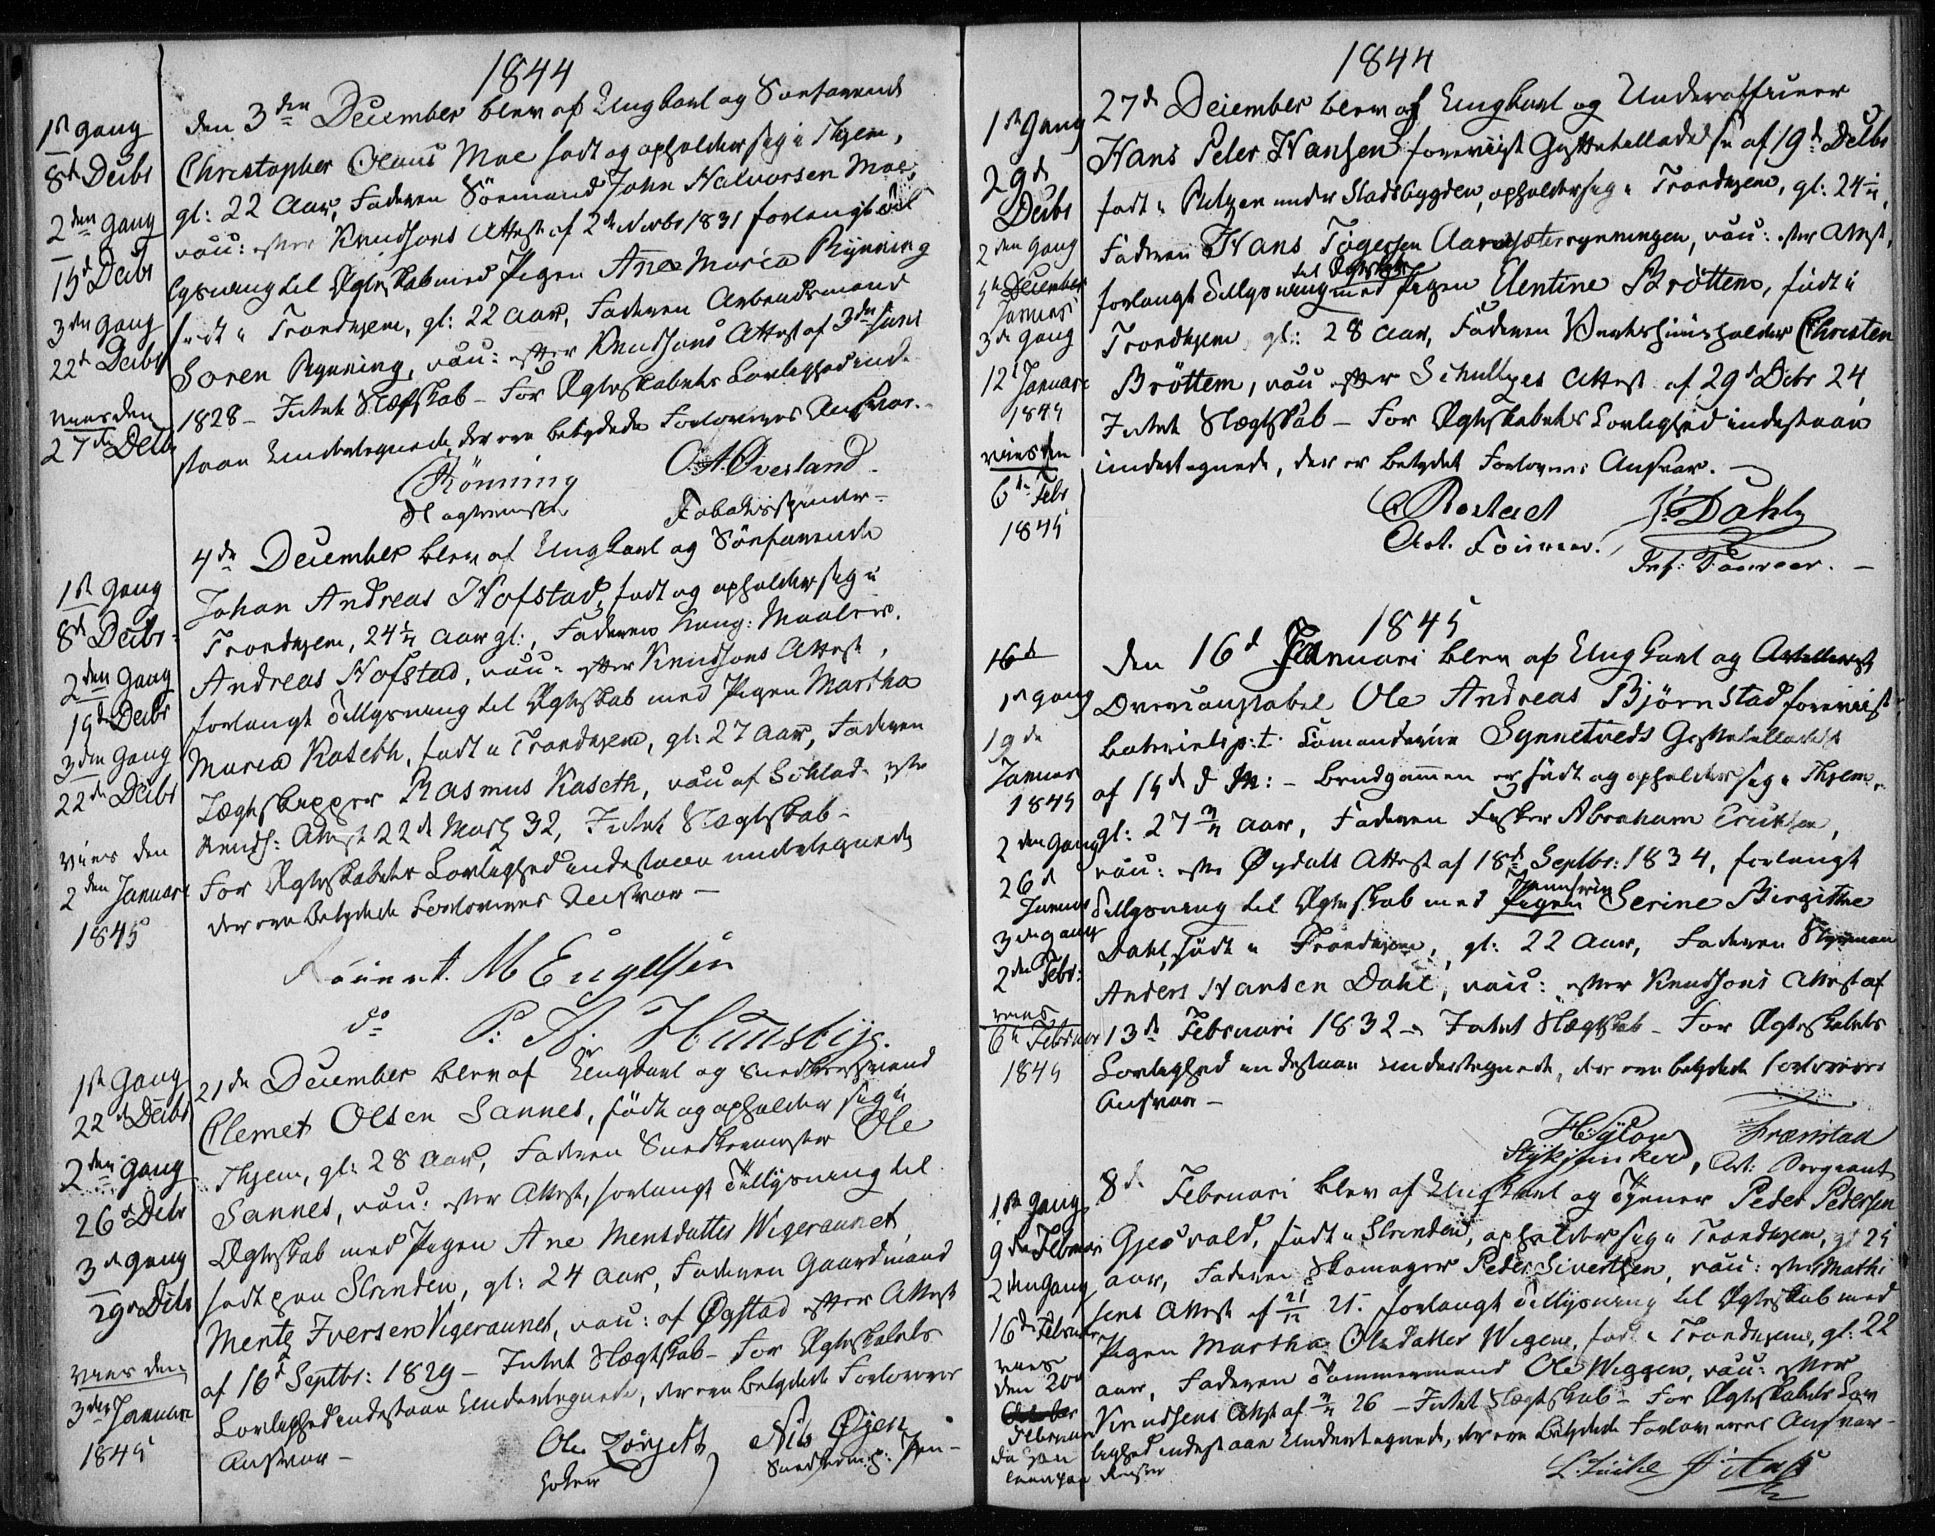 1844
1st gang
8d Decbr
2den gang
15d Decbr
3den gang
22d Decbr
vies den
27de Decbr
den 3den December blev af Ungkarl og Søefarende
Christopher Olaus Moe født og opholder sig i Thjem,
gl: 22 Aar, Faderen Sömand John Halvorsen Moe,
vac: efter Knudsons Attest af 2d Novbr 1831 forlangt Til
lysning til Ægteskab med Pigen Ane Maria Rynning
født i Trondhjem, gl: 22 Aar, Faderen Arbeidsmand
Soren Rynning, vac: efter Knudsons Attest af 3die Juni
1828 - Intet Slægtskab - For Ægteskabets Lovlighed inde
staae Undertegnede, der ere betydede Forloveres Ansvar.
Rönning O. A. Øverland
Slagtermester Tobaksspinder
1st gang
8d Decbr:
2den gang
15d Decbr
3den gang
22de Decbr
vies den
2den Januari
1845
4de December blev af Ungkarl og Söefarende
Johan Andreas Hofstad, født og opholder sig i
Trondhjem, 24 1/4 Aar gl:, Faderen Kung: Maaler
Andreas Hofstad, vac: efter Knudsons Attest,
forlangt Tillysning til Ægteskab med Pigen Martha
Maria Kaseth, født i Trondhjem, gl: 27 Aar, Faderen
Jægteskipper Rasmus Kaseth, vac: af efter
Knuds: Attest 22d Marts 32, Intet Slægtskab -
For Ægteskabets Lovlighed indestaae undertegnede
der ere betydede Forloveres Ansvar -
M Engelsen
do P. Th. Hunsbye.
1st Gang
22de Decbr
2den gang
26d Decbr
3de gang
29d Decbr
vies den
3die Januari
1845
21de December blev af Ungkarl og Snedkersvend
Clemet Olsen Sannes, født og opholder sig i
Thjem, gl: 28 Aar, Faderen Snedkermester Ole
Sannes, vac: efter Attest, forlangt Tillysning til
Ægteskab med Pigen Ane Mentsdatter Wigeraunet,
født paa Strinden, gl: 24 Aar, Faderen Gaardmand
Mentz Iversen Vigeraunet, vac: af Øgstad efter Attest
af 16d Septbr: 1829 - Intet Slægtskab - For Ægteskabets
Lovlighed indestaae Undertegnede, der ere betydede Forloveres
Ansvar - Ole Nils Øyen
1844
1st Gang
29d
Decbr
2den gang
5te December
Januari
3de gang
12d Januari
1845
vies den
6te Febr
1845
27d December blev af Ungkarl og Underofficeer
Hans Peter Hansen foreviist Giftetilladelse af 19d Decbr
født i under Stadsbygden, opholder sig i Trondhjem, gl: 24 1/4,
Faderen Hans Tøgersen Aarnseterrynningen, vac: efter Attest,
til Ægteskab
forlangt Tillysning med Pigen Elentine Bröttem, født i
Trondhjem, gl: 28 Aar, Faderen Vertshuusholder Christen
Bröttem, vac: efter Schultzes Attest af 29d Decbr 24,
Intet Slægtskab - For Ægteskabets Lovlighed indestaae
undertegnede, der er betydet Forloveres Ansvar. -
Rostad Dahl
Art. Foureer. Inf: Foureer. -
1845
16d
1st gang
19de
Januar
1845
2den Gang
26d
Januar
3de gang
2den Febr:
vies
6te Februar
1845
Den 16d Januari blev af Ungkarl og Artillerist
Overconstabel Ole Andreas Björnstad foreviist
Batteriets p:t: Comandeurs Synnetveds Giftetilladelse
af 15d d M: - Brudgommen er født og opholder sig i Thjem,
gl: 27 3/4 Aar, Faderen Fisker Abraham Ericksen,
vac: efter Øydahls Attest af 18d Septbr: 1834, forlangt
Jomfruen
Tillysning til Ægteskab med Pigen Serine Birgitthe
Dahl, født i Trondhjem, gl: 22 Aar, Faderen Styrmand
Anders Hansen Dahl, vac: efter Knudsons Attest af
13de Februari 1832 - Intet Slægtskab - For Ægteskabets
Lovlighed indestaae Undertegnede, der ere betydede Forloveres
Ansvar -
Stykjunker, Art: Sergeant
1ste Gang
9de Februari
2den Gang
16de Februar
vies
den 20de
Februar
8d Februari blev af Ungkarl og Tjener Peder Pedersen
Gjesvald, født i Strinden, opholder sig i Trondhjem, gl 25
Aar, Faderen Skomager Peder Sivertsen, vac: efter Mathi
sens Attest af 21/12 21. forlangt Tillysning til Ægteskab med
Pigen Martha Olsdatter Wigen, født i Trondhjem, gl: 22
Aar, Faderen Tømmermand Ole Wiggen, vac: efter
Knudsens Attst af 26 - Intet Slægtskab - For Ægteskabets Lov
lighed indestaae Undertegnede, der ere betydede Forloveres Ansvar -